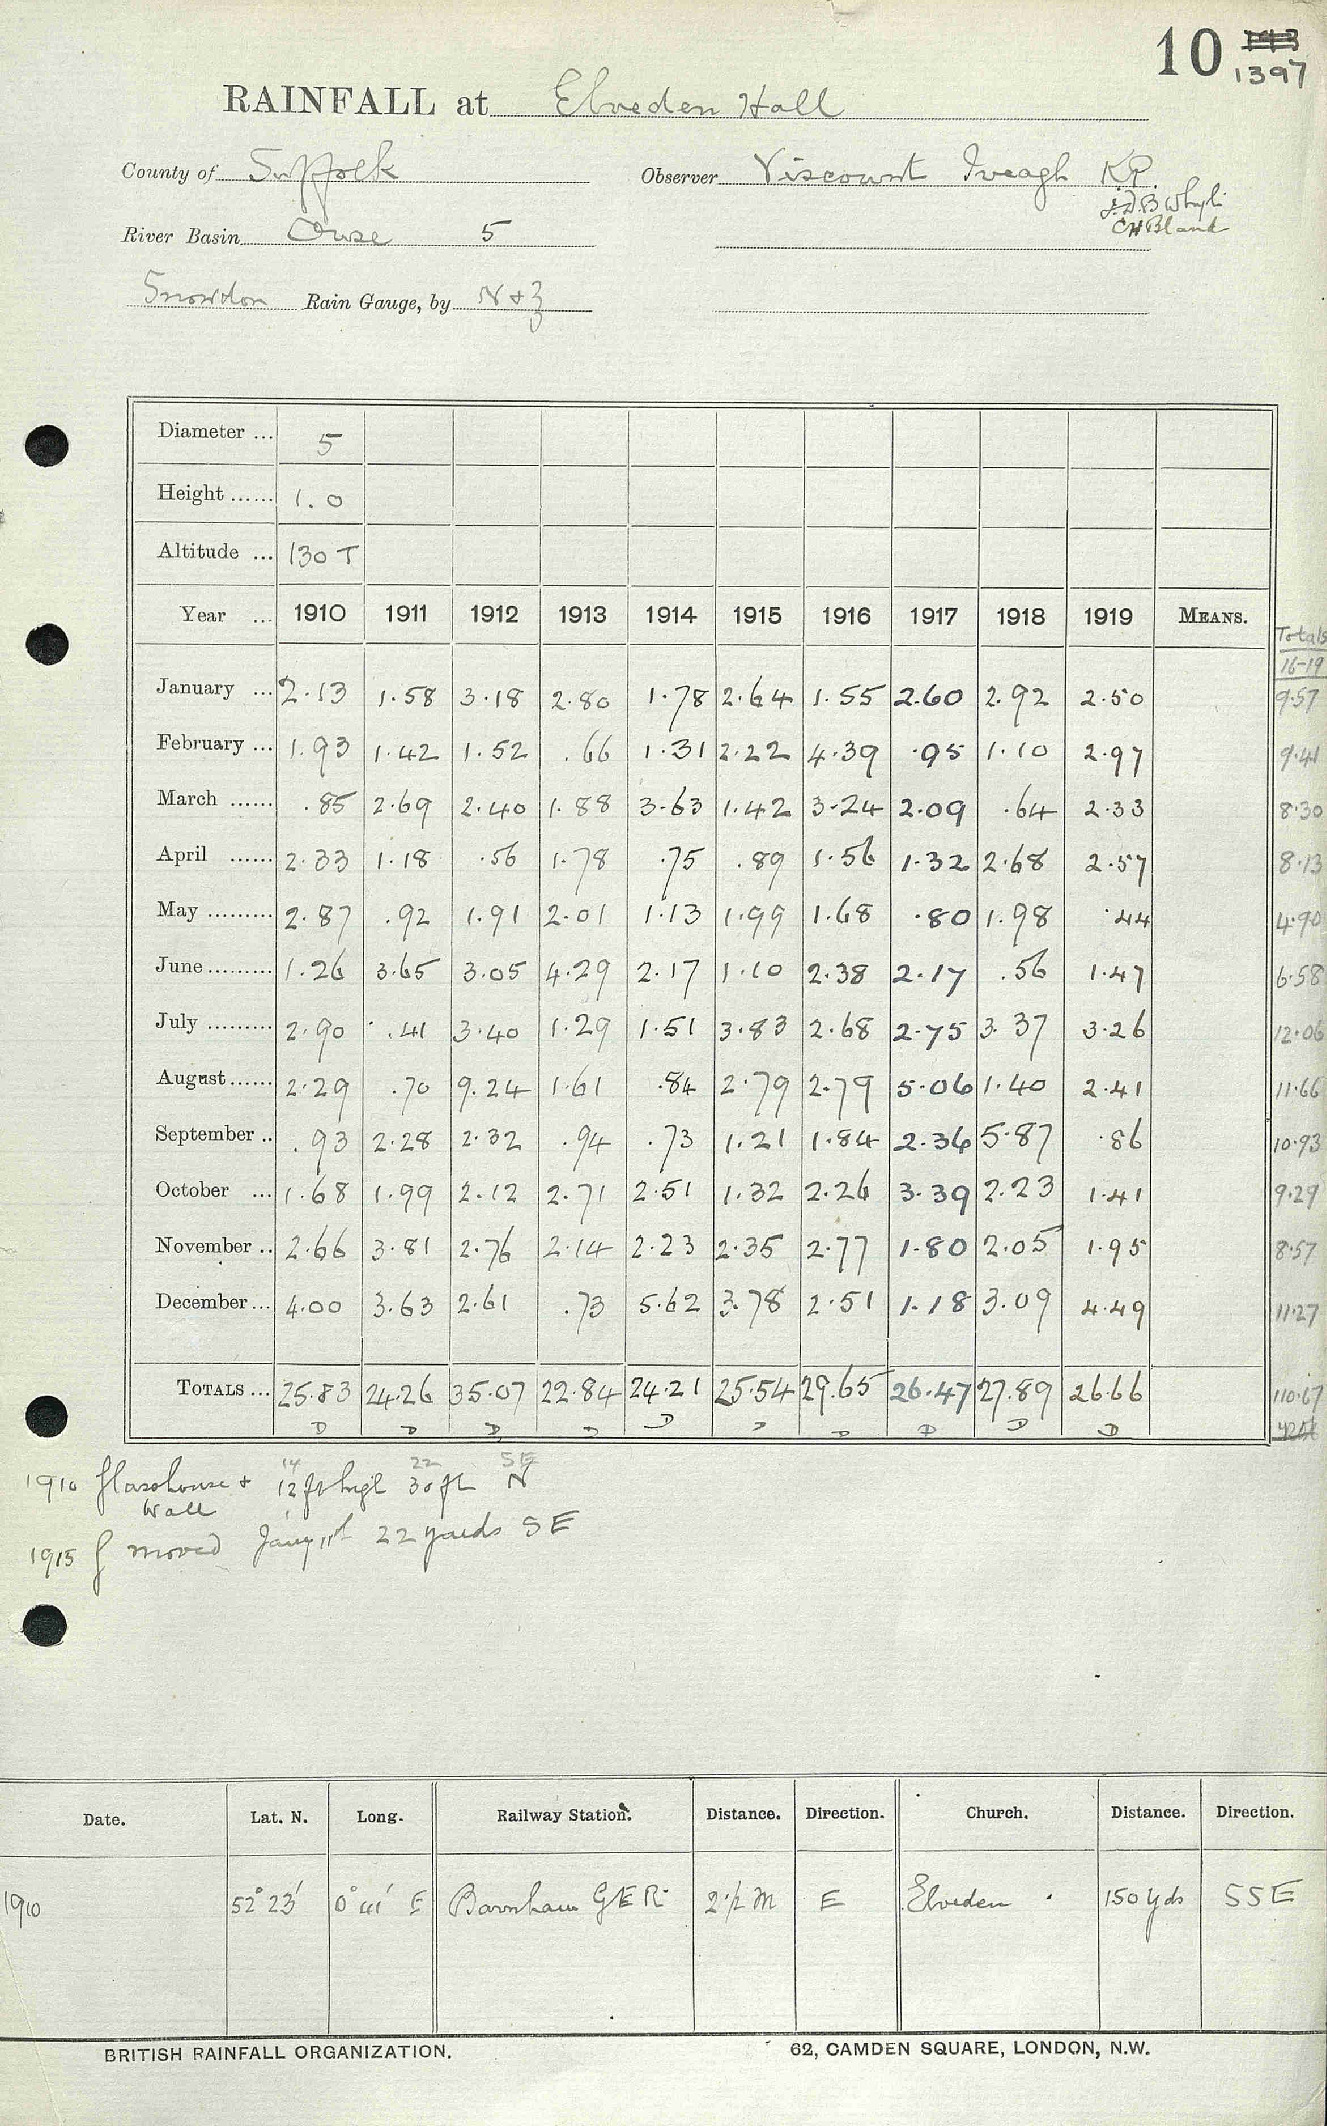 10 1397
RAINFALL at Elveden Hall
County of Suffolk Observer Viscount Iveagh K.P.
C H Bland
River Basin Ouse 5
Snowdon Rain Gauge, by N & Z
Diameter ... 5
Height ...... 1.0
Altitude ... 130 T
Year ... 1910 1911 1912 1913 1914 1915 1916 1917 1918 1919 MEANS. Totals 16-19
January ... 2.13 1.58 3.18 2.80 1.78 2.64 1.55 2.60 2.92 2.50 9.57
February ... 1.93 1.42 1.52 .66 1.31 2.22 4.39 .95 1.10 2.97 9.41
March ...... .85 2.69 2.40 1.88 3.63 1.42 3.24 2.09 .64 2.33 8.30
April ...... 2.33 1.18 .56 1.78 .75 .89 1.56 1.32 2.68 2.57 8.13
May ......... 2.87 .92 1.91 2.01 1.13 1.99 1.68 .80 1.98 .44 4.90
June ......... 1.26 3.65 3.05 4.29 2.17 1.10 2.38 2.17 .56 1.47 6.58
July ......... 2.90 .41 3.40 1.29 1.51 3.83 2.68 2.75 3.37 3.26 12.06
August ...... 2.29 .70 9.24 1.61 .84 2.79 2.79 5.06 1.40 2.41 11.66
September .. .93 2.28 2.32 .94 .73 1.21 1.84 2.36 5.87 .86 10.93
October ... 1.68 1.99 2.12 2.71 2.51 1.32 2.26 3.39 2.23 1.41 9.29
November .. 2.66 3.81 2.76 2.14 2.23 2.35 2.77 1.80 2.05 1.95 8.57
December ... 4.00 3.63 2.61 .73 5.62 3.78 2.51 1.18 3.09 4.49 11.27
TOTALS ... 25.83 24.26 35.07 22.84 24.21 25.54 29.65 26.47 27.89 26.66 110.67
D D D D D D D D D D
14 22 SE
1910 Glasshouse & 12 ft high 30 ft N
Wall
1915 G moved Jany 1st 22 yards SE
Date. Lat. N. Long. Railway Station. Distance. Direction. Church. Distance. Direction.
1910 52° 23' 0° 41' E Barnham G E R 2 1/2 M E Elveden 150 yds SSE
BRITISH RAINFALL ORGANIZATION. 62, CAMDEN SQUARE, LONDON, N.W.